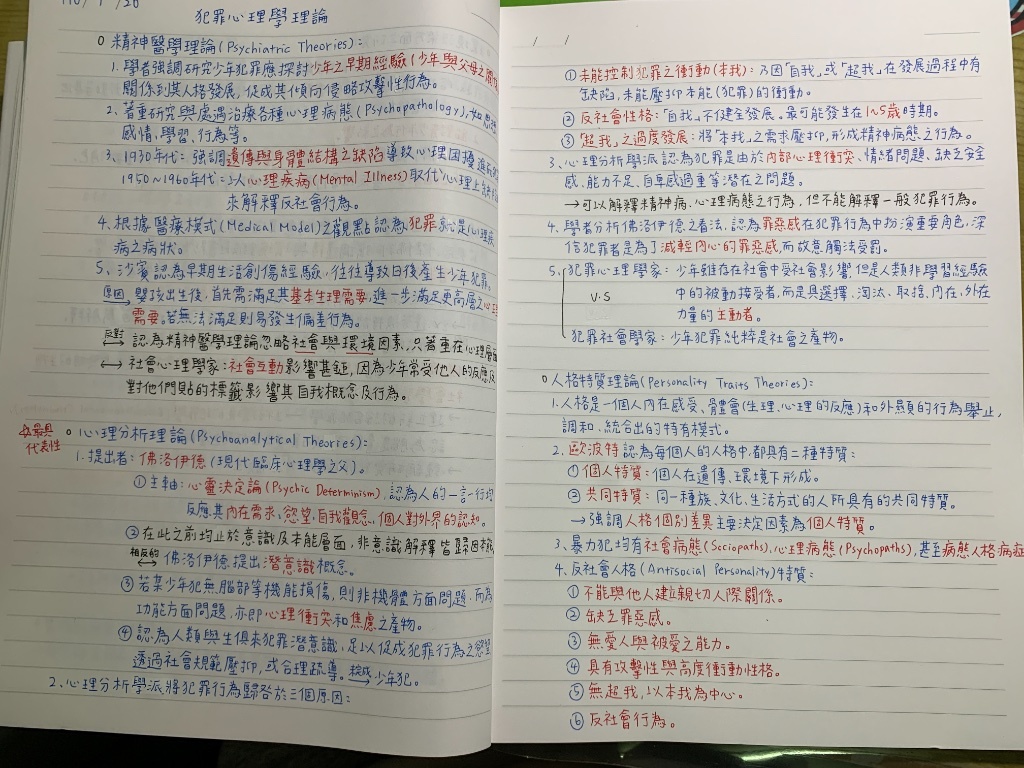 110/1/26
犯罪心理學理論
○ 精神醫學理論(Psychiatric Theories):
1. 學者強調研究少年犯罪應探討少年之早期經驗(少年與父母之間
關係到其人格發展,促成其傾向侵略攻擊性行為。
2. 著重研究與處遇治療各種心理病態(Psychopathology),如思想
感情、學習、行為等。
3. 1930年代:強調遺傳與身體結構之缺陷導致心理困擾進而
1950~1960年代:以心理疾病(Mental Illness)取代"心理上缺陷
來解釋反社會行為。
4. 根據醫療模式(Medical Model)之觀點認為犯罪就是心理疾
病之病狀。
5. 沙賓認為早期生活創傷經驗,往往導致日後產生少年犯罪。
原因 嬰孩出生後,首先需滿足其基本生理需要,進一步滿足更高層之心理
需要。若無法滿足則易發生偏差行為。
反對 ↔ 認為精神醫學理論忽略社會與環境因素,只著重在心理層面
↔ 社會心理學家:社會互動影響甚鉅,因為少年常受他人的反應及
對他們貼的標籤影響其自我概念及行為。
最具
代表性
○ 心理分析理論(Psychoanalytical Theories):
1. 提出者:佛洛伊德(現代臨床心理學之父)。
① 主軸:心靈決定論(Psychic Determinism),認為人的一言一行均
反應其內在需求、慾望、自我觀念、個人對外界的認知。
② 在此之前均止於意識及本能層面,非意識解釋皆歸因本能
相反的 ↔ 佛洛伊德提出潛意識概念。
③ 若某少年犯無腦部等機能損傷,則非機體方面問題,而為
功能方面問題,亦即心理衝突和焦慮之產物。
④ 認為人類與生俱來犯罪潛意識,足以促成犯罪行為之慾望
透過社會規範壓抑,或合理疏導。→ 少年犯。
2. 心理分析學派將犯罪行為歸咎於三個原因:
/ /
① 未能控制犯罪之衝動(本我):乃因「自我」或「超我」在發展過程中有
缺陷,未能壓抑本能(犯罪)的衝動。
② 反社會性格:「自我」不健全發展。最可能發生在1~5歲時期。
③ 「超我」之過度發展:將「本我」之需求壓抑,形成精神病態之行為。
3. 心理分析學派認為犯罪是由於內部心理衝突、情緒問題、缺乏安全
感、能力不足、自卑感過重等潛在之問題。
→ 可以解釋精神病、心理病態之行為,但不能解釋一般犯罪行為。
4. 學者分析佛洛伊德之看法,認為罪惡感在犯罪行為中扮演重要角色,深
信犯罪者是為了減輕內心的罪惡感,而故意觸法受罰。
5. 犯罪心理學家:少年雖存在社會中受社會影響,但是人類非學習經驗
V.S 中的被動接受者,而是具選擇、淘汰、取捨,內在、外在
力量的主動者。
犯罪社會學家:少年犯罪純粹是社會之產物。
○ 人格特質理論(Personality Traits Theories):
1. 人格是一個人內在感受、體會(生理、心理的反應)和外顯的行為舉止,
調和、統合出的特有模式。
2. 歐波特認為每個人的人格中,都具有二種特質:
① 個人特質:個人在遺傳、環境下形成。
② 共同特質:同一種族、文化、生活方式的人所具有的共同特質。
→ 強調人格個別差異主要決定因素為個人特質。
3. 暴力犯均有社會病態(Sociopaths)、心理病態(Psychopaths),甚至病態人格病症
4. 反社會人格(Antisocial Personality)特質:
① 不能與他人建立親切人際關係。
② 缺乏罪惡感。
③ 無愛人與被愛之能力。
④ 具有攻擊性與高度衝動性格。
⑤ 無超我,以本我為中心。
⑥ 反社會行為。